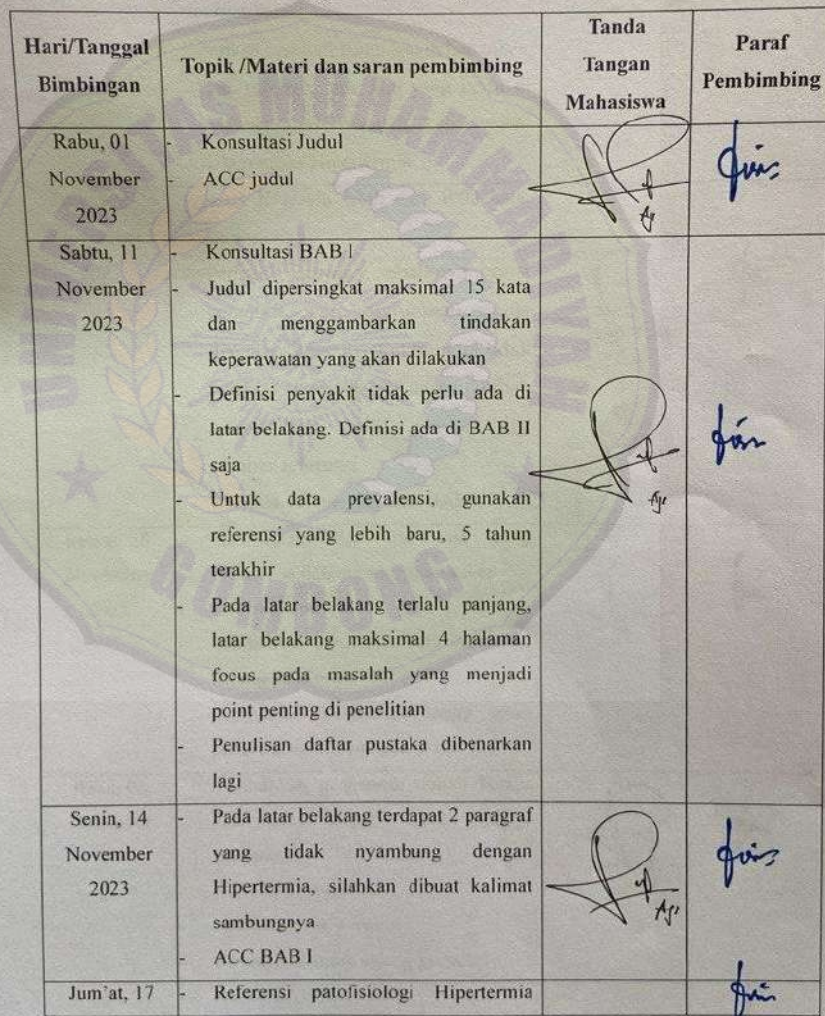 Hari/Tanggal Bimbingan
Topik /Materi dan saran pembimbing
Tanda Tangan Mahasiswa
Paraf Pembimbing
Rabu, 01
November
2023
- Konsultasi Judul
- ACC judul
Sabtu, 11
November
2023
- Konsultasi BAB I
- Judul dipersingkat maksimal 15 kata
dan menggambarkan tindakan
keperawatan yang akan dilakukan
- Definisi penyakit tidak perlu ada di
latar belakang. Definisi ada di BAB II
saja
- Untuk data prevalensi, gunakan
referensi yang lebih baru, 5 tahun
terakhir
- Pada latar belakang terlalu panjang,
latar belakang maksimal 4 halaman
focus pada masalah yang menjadi
point penting di penelitian
- Penulisan daftar pustaka dibenarkan
lagi
Senin, 14
November
2023
- Pada latar belakang terdapat 2 paragraf
yang tidak nyambung dengan
Hipertermia, silahkan dibuat kalimat
sambungnya
- ACC BAB I
Jum'at, 17
- Referensi patofisiologi Hipertermia
UNIVERSITAS MUHAMMADIYAH
GOMBONG